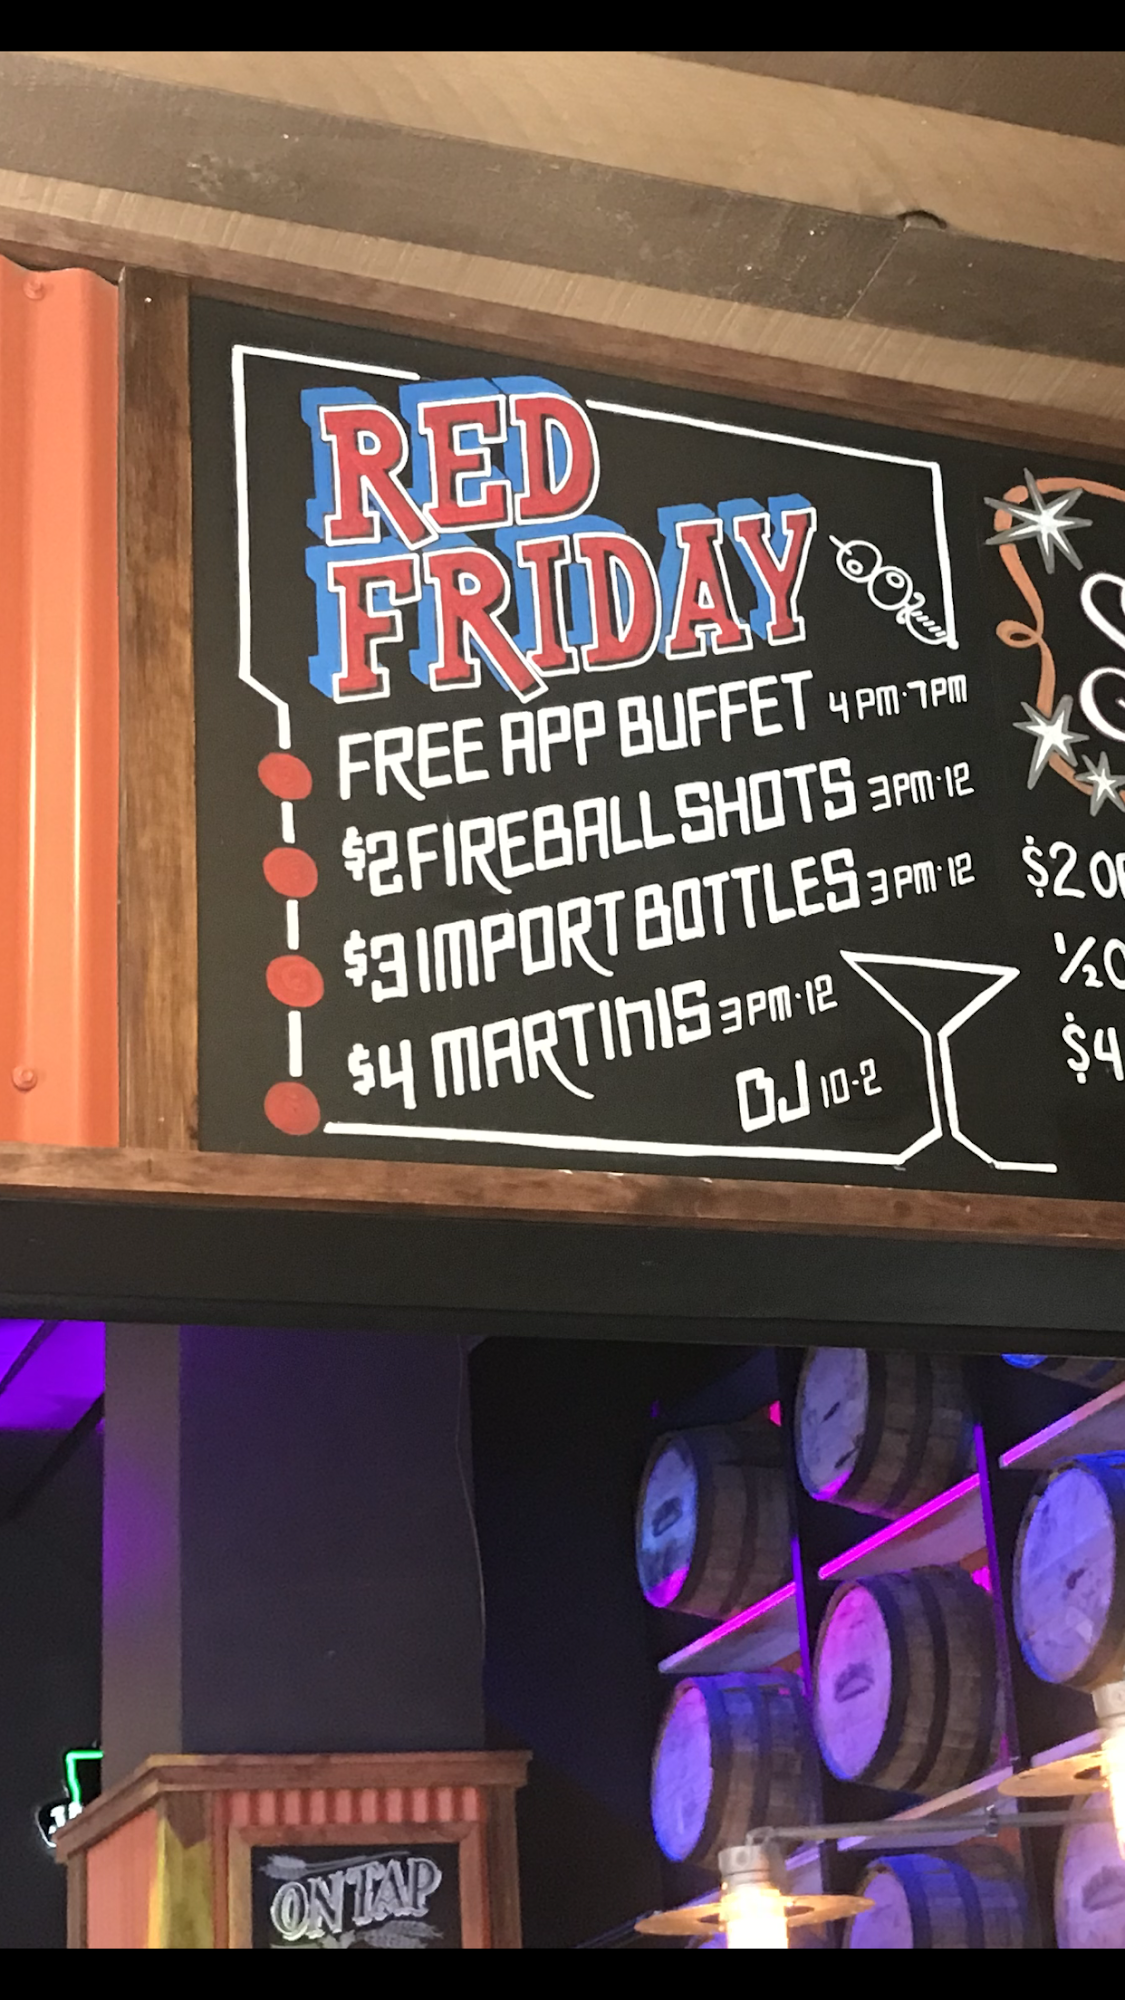 RED
FRIDAY
FREE APP BUFFET 4PM·7PM
$2 FIREBALL SHOTS 3PM·12
$3 IMPORT BOTTLES 3PM·12
$4 MARTINIS 3PM·12
DJ 10-2
$2
1/2
$4
ON TAP